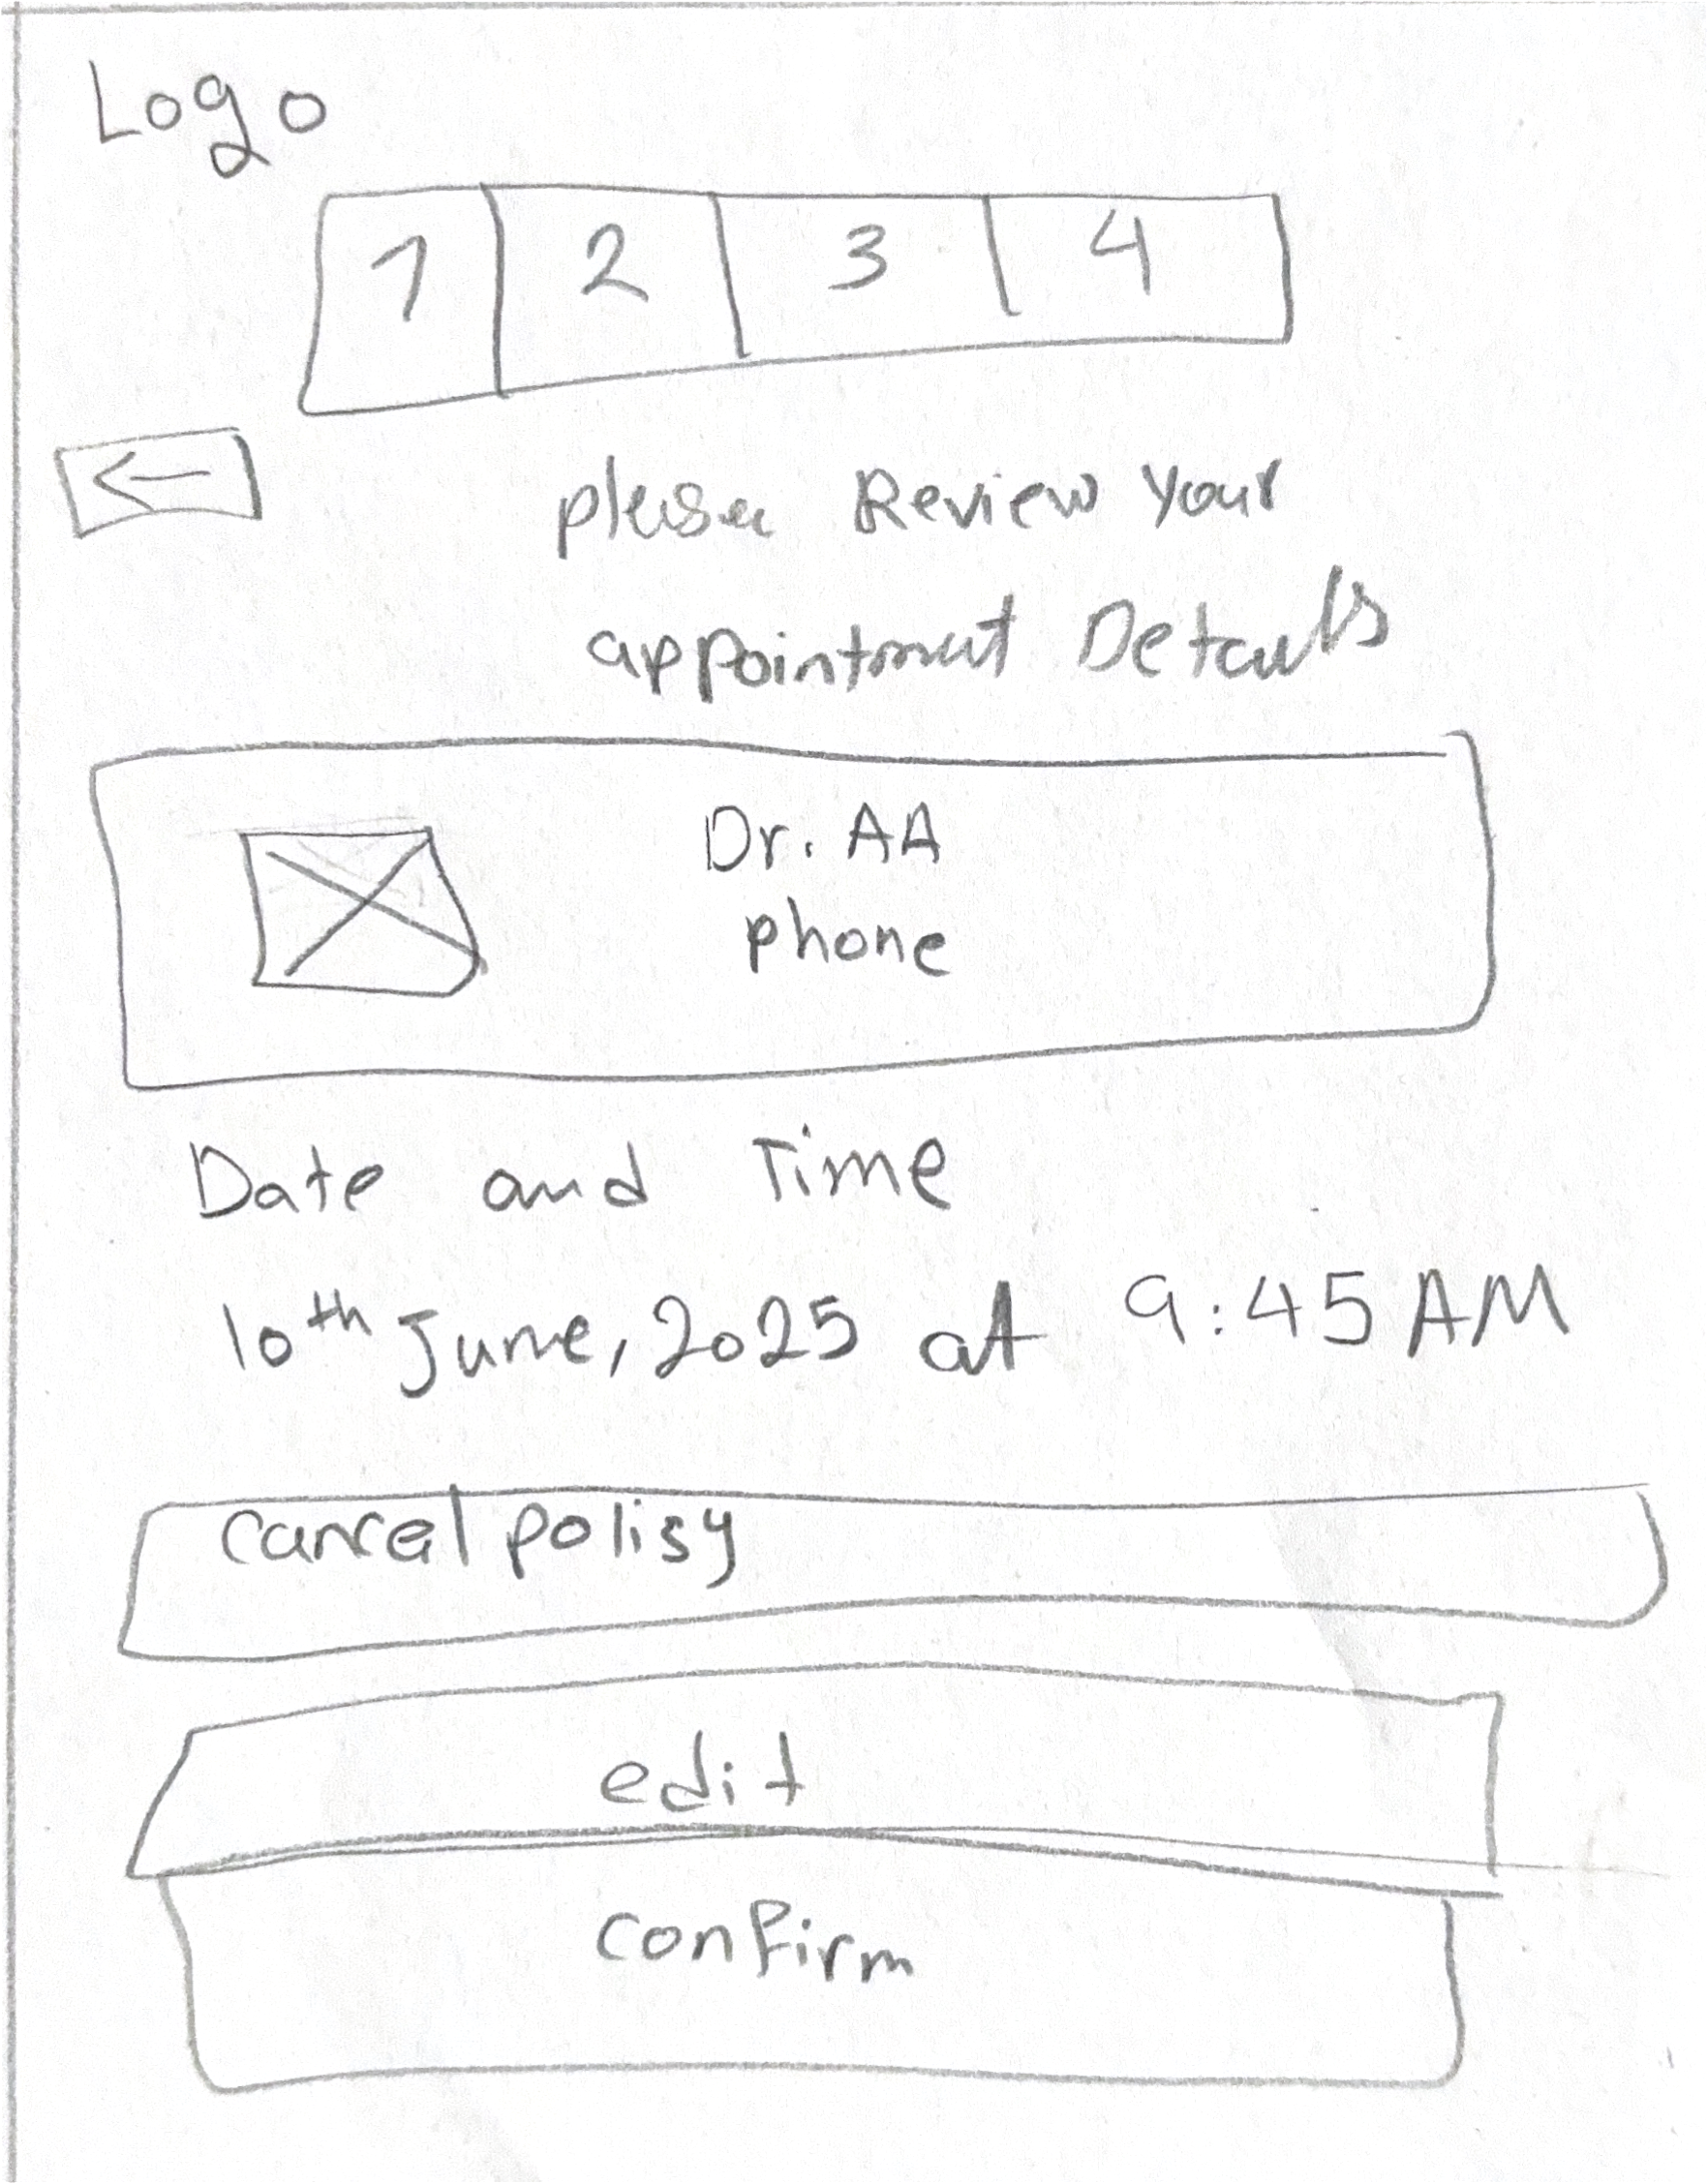 Logo
1 2 3 4
please Review Your
appointment Details
Dr. AA
phone
Date and Time
10th June, 2025 at 9:45 AM
cancel polisy
edit
confirm